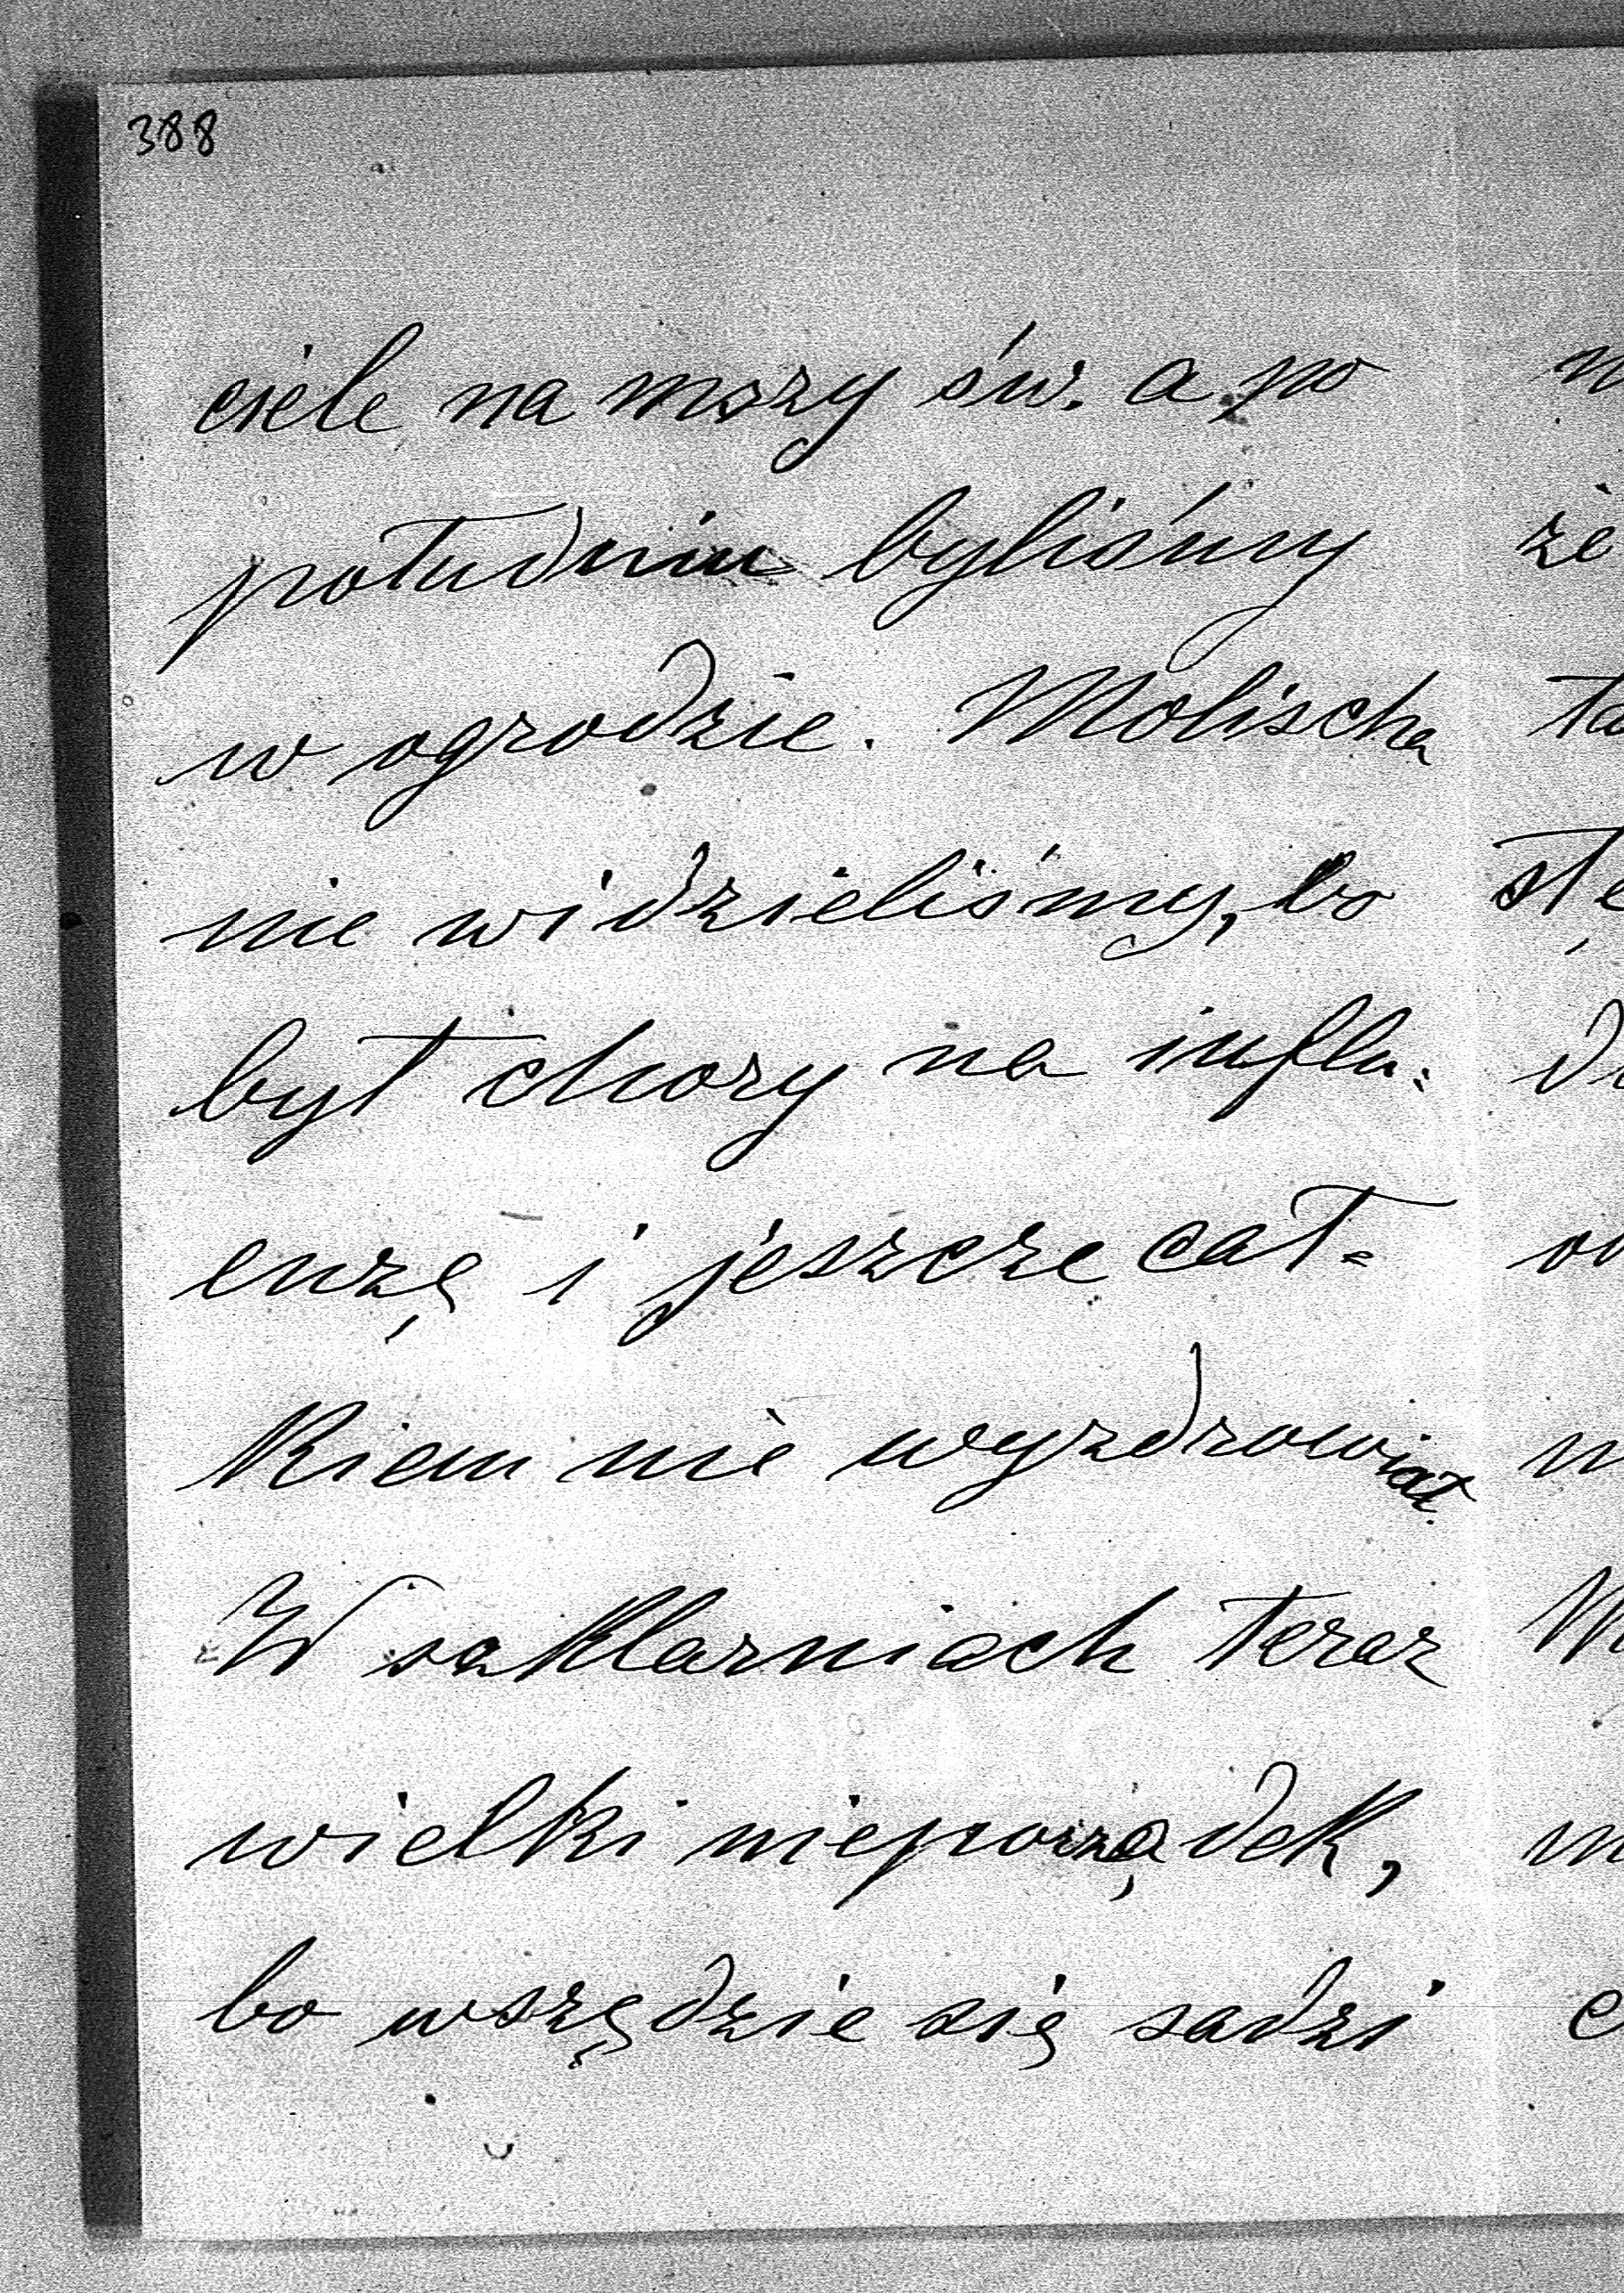 388
ciele na mszy św. a po
południu byliśmy
w ogrodzie. Molischa
nie widzieliśmy, bo
był chory na influ:
enzę i jeszcze cał=
kiem nie wyzdrowiał.
W szklarniach teraz
wielki nieporządek,
bo wszędzie się sadzi